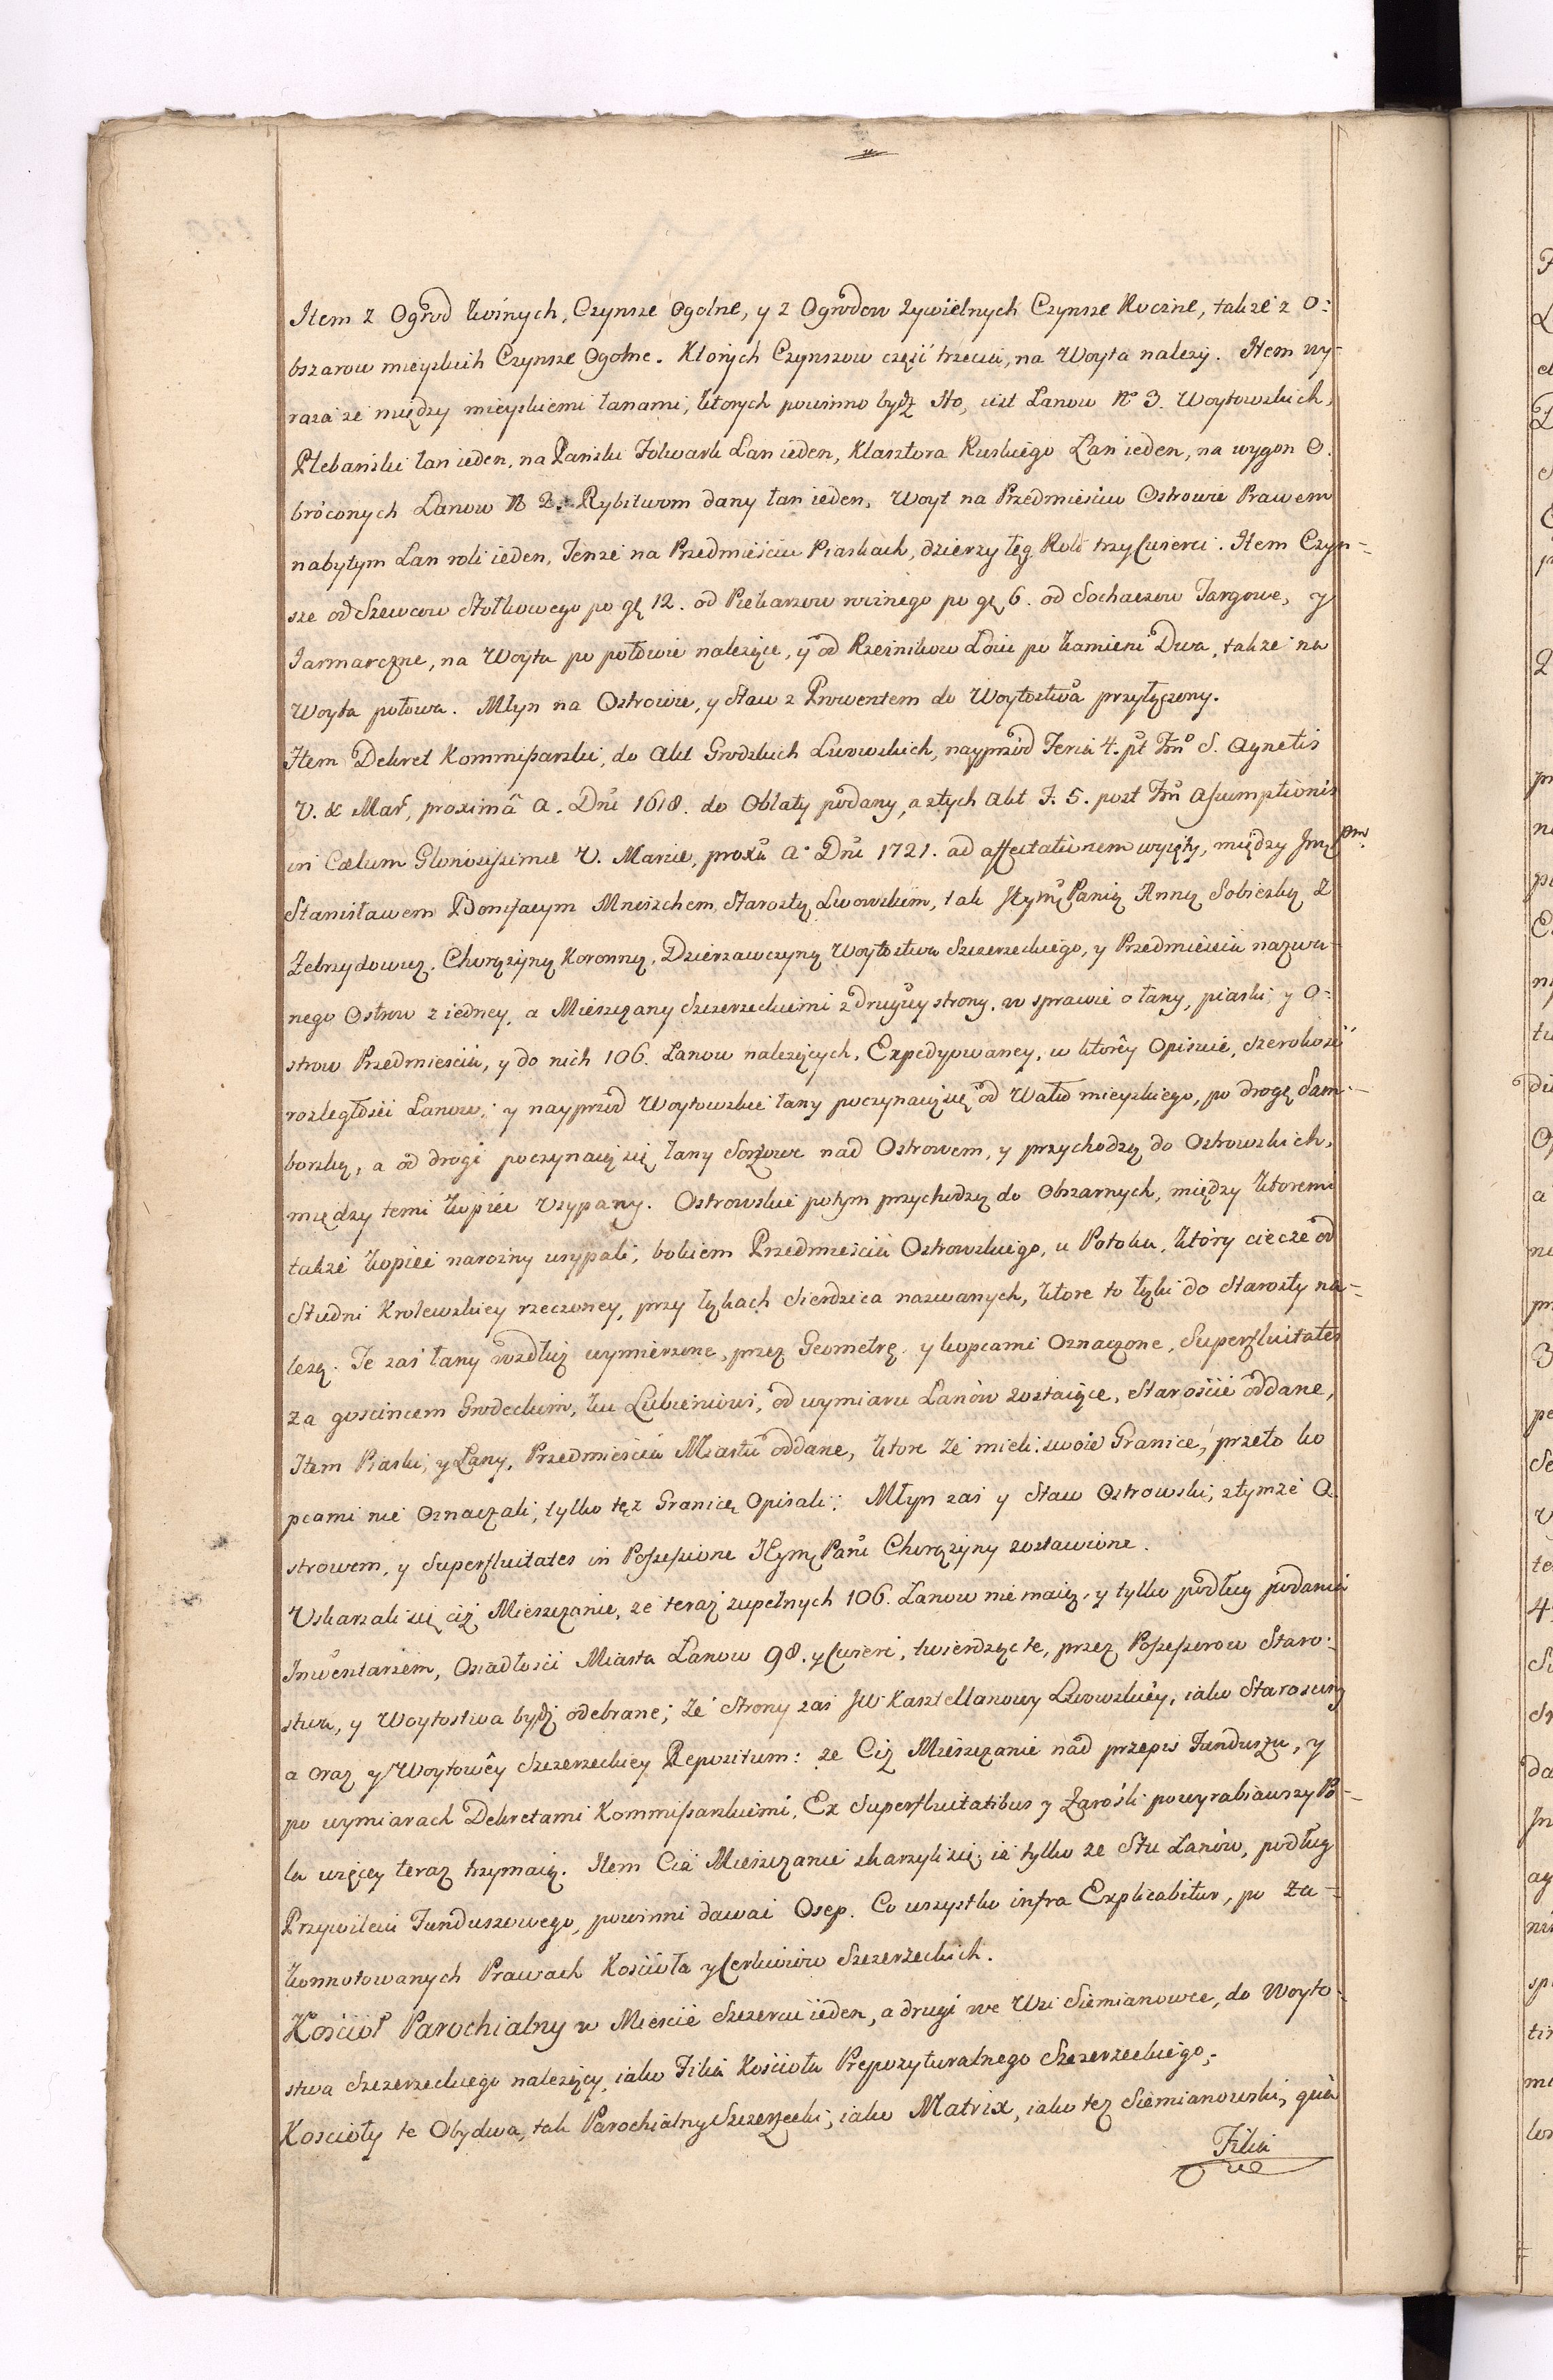 Item z Ogrod Rocznych, Czynsze Ogolne, y z Ogrodow Zywielnych Czynsze Roczne, takze z O-
bszarow mieyskich Czynsze Ogolne. Ktorych Czynszow część trzecia, na Woyta nalezy. Item wy-
raza ze między mieyskiemi łanami, ktorych powinno bydz sto, iest Lanow No 3. Woytowskich,
Plebański łan ieden, na Pański Folwark Łan ieden, Klasztora Ruskiego Łan ieden, na wygon O-
bróconych Lanow No 2. Rybitwom dany łan ieden, Woyt na Przedmieściu Ostrowie Prawem
nabytym Łan roli ieden, Tenze na Przedmieściu Piaskach, dzierzy też Roli trzy Cwierci. Item Czyn-
sze od Szewcow Stołkowego po gr 12. od Piekarzow roznego po gr 6. od Sochaczow Targowe, y
Jarmarczne, na Woyta po połowie nalezące, y od Rzeźnikow Łoiu po kamieni Dwa, takze na
Woyta połowa. Młyn na Ostrowie, y Staw z Prowentem do Woytostwa przyłączony.
Item Dekret Kommissarski, do Akt Grodzkich Lwowskich, nayprzód Feria 4. pt Ftm S. Agnetis
V. & Mar, proximâ A. Dni 1618. do Oblaty podany, a ztych Akt F. 5. post Ftm Assumptionis
in Cælum Gloriosissimæ V. Mariæ, proxa Ao Dni 1721. ad affectationem wyięty, między Jmę Pm.
Stanisławem Bonifacym Mniszchem, Starostą Lwowskim, tak Jeymę Panią Anną Sobieską z
Zebrzydowic, Chorążyną Koronną, Dzierzawczyną Woytostwa Szczerzeckiego, y Przedmieścia nazwa-
nego Ostrow z iedney, a Mieszczany Szczerzeckiemi z drugiey strony, w sprawie o łany, piaski, y O-
strow Przedmieścia, y do nich 106. Lanow nalezących, Expedyowaney, w ktorey Opisuie, szerokość
rozległości Lanow, y nayprzód Woytowskie łany poczynaią się od Wału mieyskiego, po drogę Sam-
borską, a od drogi poczynaią się łany Sołtowe nad Ostrowem, y przychodzą do Ostrowskich,
między temi kopiec usypany. Ostrowskie potym przychodzą do Obszarnych, między ktoremi
takze kopiec narozny usypali, bokiem Przedmieścia Ostrowskiego, u Potoka, ktory ciecze od
Studni Krolewskiey rzeczoney, przy łąkach Sierdzica nazwanych, ktore to łąki do Starosty na-
lezą. Te zaś łany wzdłuz wymierzone, przez Geometrę, y kopcami Oznaczone, Superfluitates
za gościncem Grodeckim, ku Lubieniowi, od wymiaru Lanów zostaiące, Staroście oddane,
Item Piaski, y Łany, Przedmieścia Miastu oddane, ktore ze mieli swoie Granice, przeto ko
pcami nie Oznaczali, tylko też Granicę Opisali. Młyn zaś y Staw Ostrowski, ztymze O-
strowem, y Superfluitates in Possessione Jeymę Pani Chorązyny zostawione.
Uskarzali się ciż Mieszczanie, ze teraz zupełnych 106. Lanow nie maią, y tylko podług podania
Inwentarzem, Osiadłości Miasta Lanow 98. y Cwierć, twierdząc te, przez Possessorow Staro-
stwa, y Woytostwa bydź odebrane; Ze Strony zaś JW Kasztellanowy Lwowskiey, iako Starosciny
a oraz y Woytowey Szczerzeckiey Repositum: ze Ciż Mieszczanie nad przepis Funduszu, y
po wymiarach Dekretami Kommissarskiemi, Ex Superfluitatibus y Zarośli powyrabiawszy Po-
la więcey teraz trzymaią. Item Ciż Mieszczanie skarzyli się, iż tylko ze Stu Lanów, podług
Przywileiu Funduszowego, powinni dawać Osep. Co wszystko infra Explicabitur, po Za-
konnotowanych Prawach Kościoła y Cerkwiow Szczerzeckich.
Kościoł Parochialny w Mieście Szczercu ieden, a drugi we Wsi Siemianowce, do Woyto-
stwa Szczerzeckiego nalezący, iako Filia Kościoła Prepozyturalnego Szczerzeckiego,
Kościoły te Obydwa, tak Parochialny Szczerzecki, iako Matrix, iako tez Siemianowski, quà
Filia